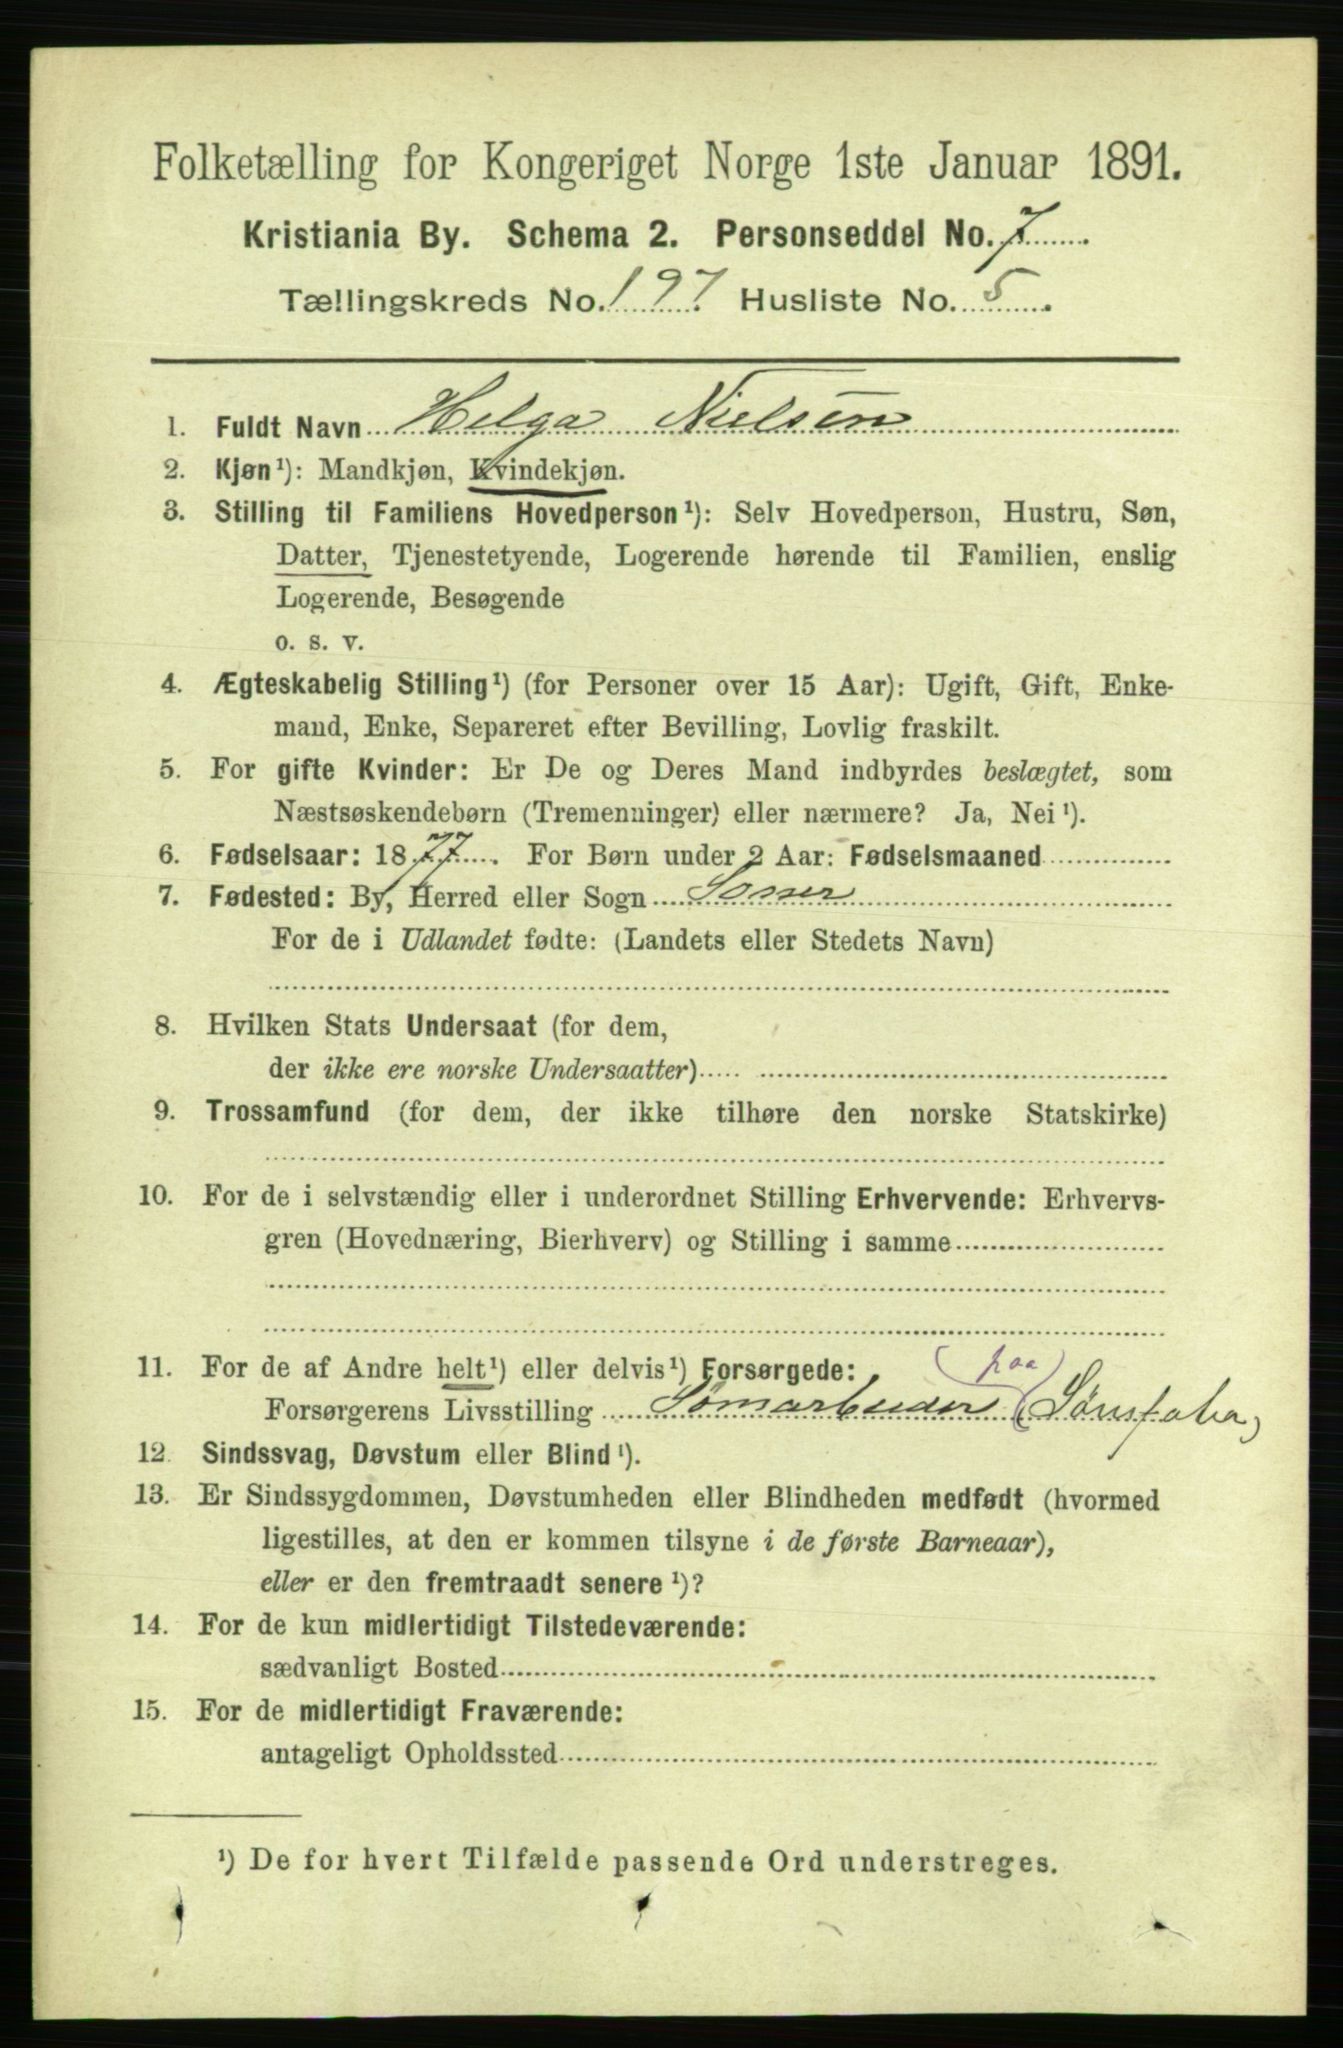 Folketælling for Kongeriget Norge 1ste Januar 1891.
Kristiania By. Schema 2. Personseddel No. 7
Tællingskreds No. 197 Husliste No. 5
1. Fuldt Navn Helga Nielsen
2. Kjøn¹): Mandkjøn, Kvindekjøn.
3. Stilling til Familiens Hovedperson¹): Selv Hovedperson, Hustru, Søn,
Datter, Tjenestetyende, Logerende hørende til Familien, enslig
Logerende, Besøgende
o. s. v.
4. Ægteskabelig Stilling¹) (for Personer over 15 Aar): Ugift, Gift, Enke-
mand, Enke, Separeret efter Bevilling, Lovlig fraskilt.
5. For gifte Kvinder: Er De og Deres Mand indbyrdes beslægtet, som
Næstsøskendebørn (Tremenninger) eller nærmere? Ja, Nei¹).
6. Fødselsaar: 1877. For Børn under 2 Aar: Fødselsmaaned
7. Fødested: By, Herred eller Sogn Soner
For de i Udlandet fødte: (Landets eller Stedets Navn)
8. Hvilken Stats Undersaat (for dem,
der ikke ere norske Undersaatter)
9. Trossamfund (for dem, der ikke tilhøre den norske Statskirke)
10. For de i selvstændig eller i underordnet Stilling Erhvervende: Erhvervs-
gren (Hovednæring, Bierhverv) og Stilling i samme
11. For de af Andre helt¹) eller delvis¹) Forsørgede: (paa)
Forsørgerens Livsstilling Sømarbeider (Sømfabr)
12. Sindssvag, Døvstum eller Blind¹).
13. Er Sindssygdommen, Døvstumheden eller Blindheden medfødt (hvormed
ligestilles, at den er kommen tilsyne i de første Barneaar),
eller er den fremtraadt senere¹)?
14. For de kun midlertidigt Tilstedeværende:
sædvanligt Bosted
15. For de midlertidigt Fraværende:
antageligt Opholdssted
¹) De for hvert Tilfælde passende Ord understreges.